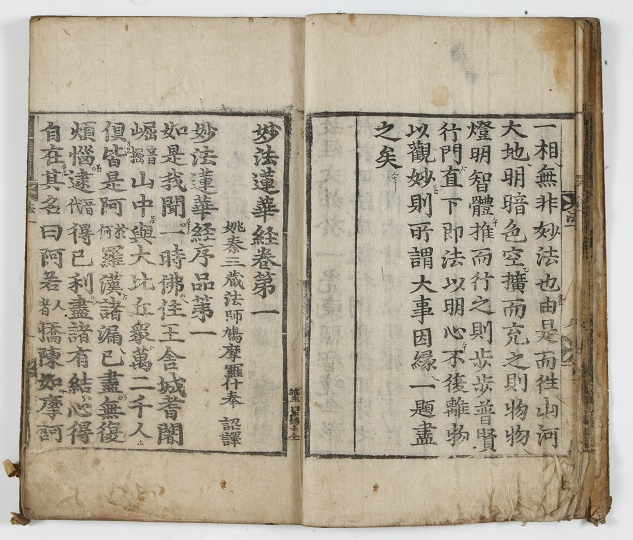 一相無非妙法也由是而徃山河
大地明暗色空擴而充之則物物
燈明智體推而行之則步步普賢
行門直下即法以明心不復離物
以觀妙則所謂大事因緣一題盡
之矣
妙法蓮華經卷第一
姚秦三藏法師鳩摩羅什奉 詔譯
妙法蓮華經序品第一
如是我聞一時佛住王舍城耆闍
崛音掘山中與大比丘衆萬二千人
俱皆是阿羅漢諸漏已盡無復
煩惱逮得己利盡諸有結心得
自在其名曰阿若憍陳如摩訶